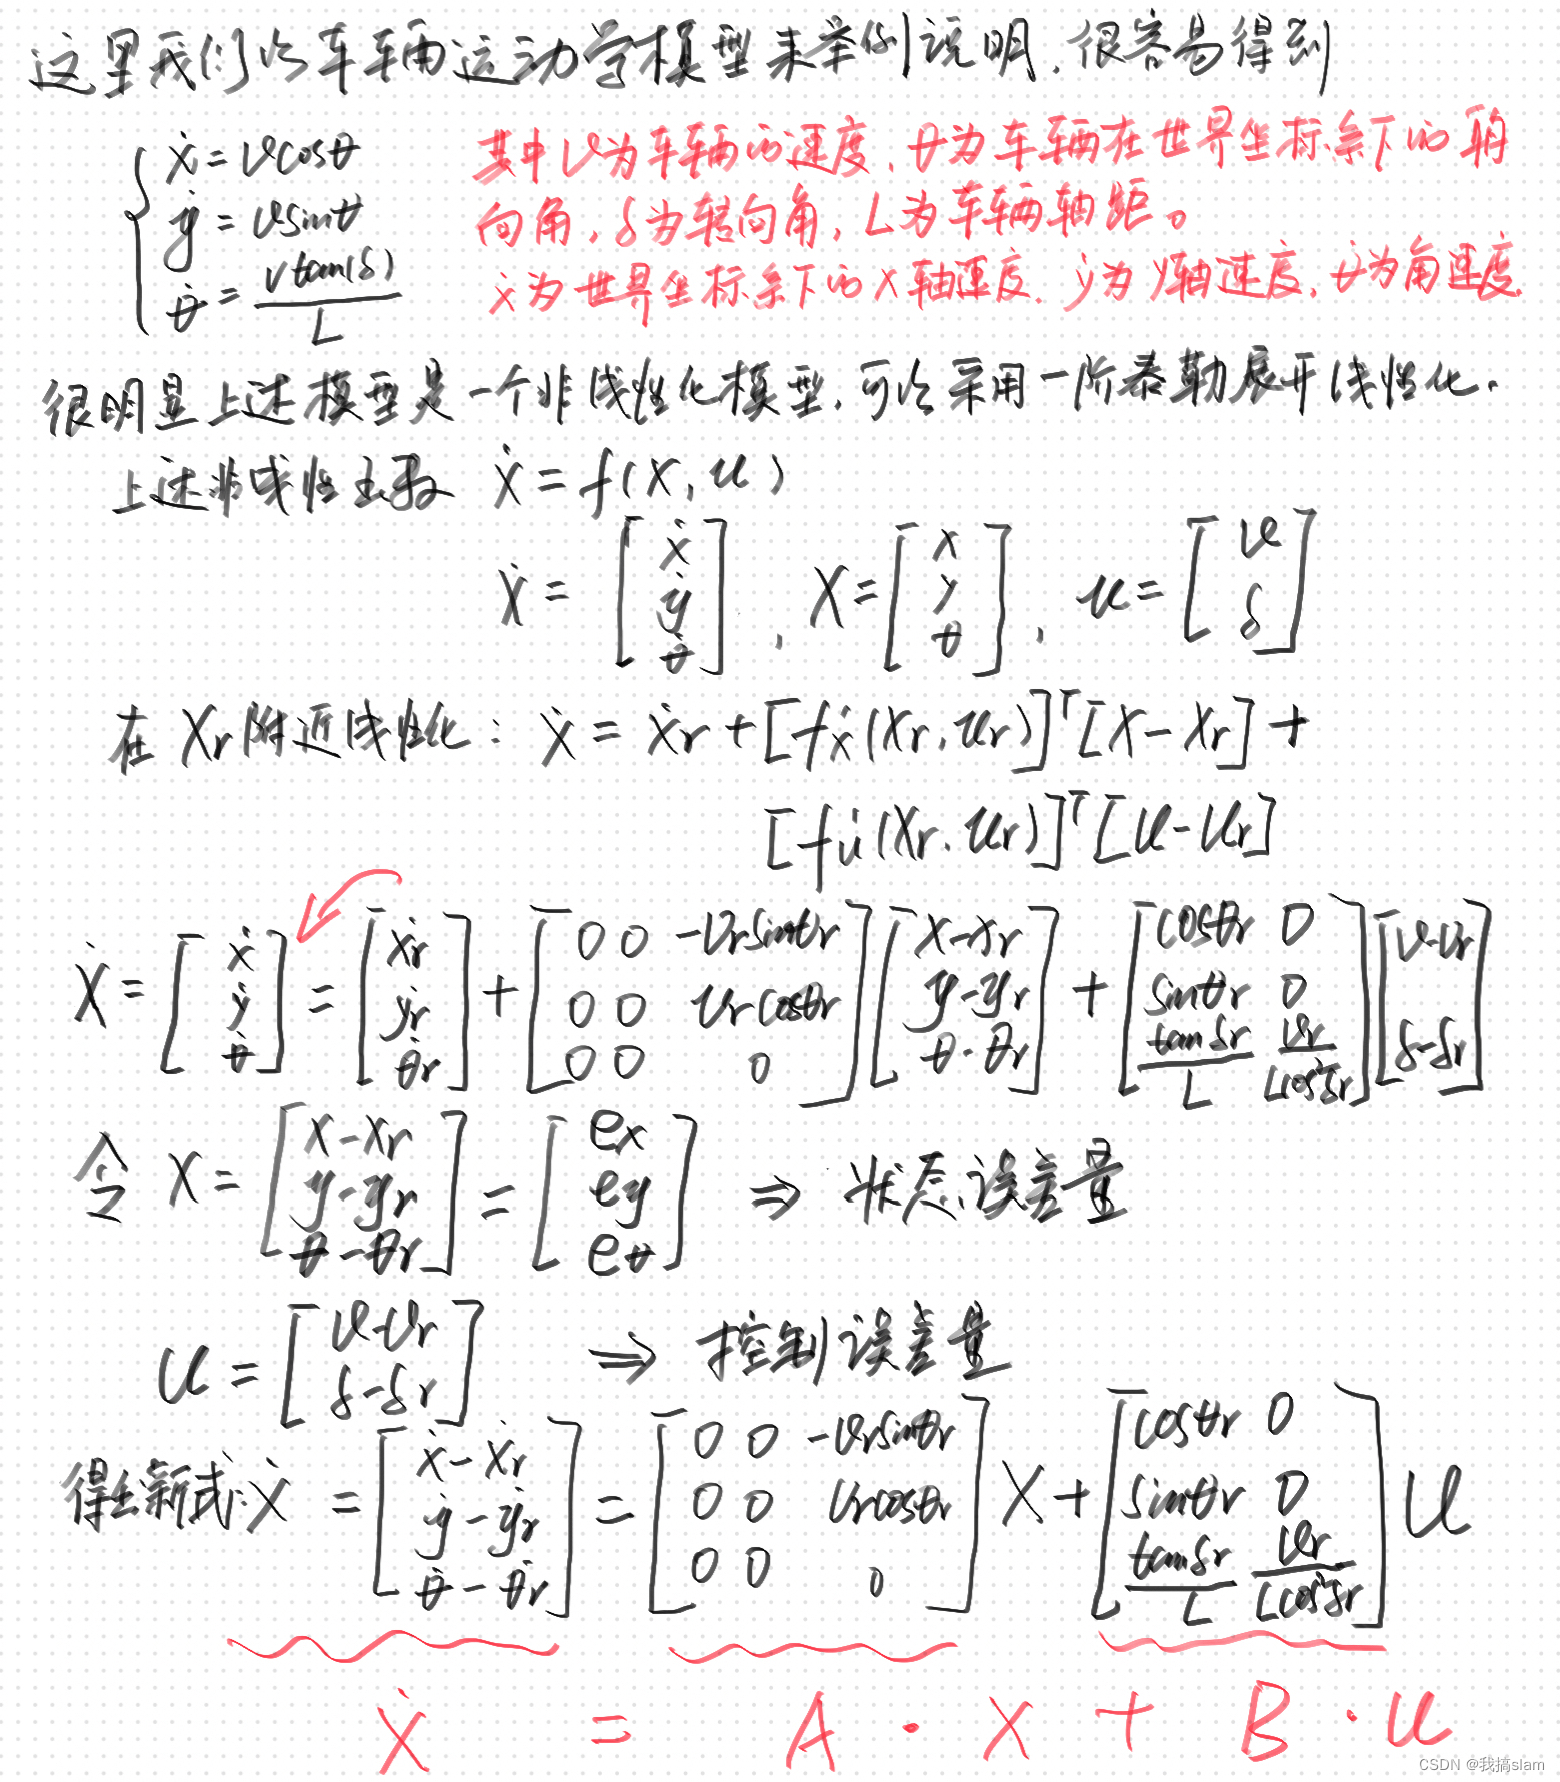 这里我们以车辆运动学模型来举例说明，很容易得到
ẋ = v cosθ 其中 v 为车辆的速度，θ 为车辆在世界坐标系下的朝
ẏ = v sinθ 向角，δ 为转向角，L 为车辆轴距。
θ̇ = v tan(δ) / L ẋ 为世界坐标系下的 X 轴速度，ẏ 为 y 轴速度，θ̇ 为角速度
很明显上述模型是一个非线性化模型，可以采用一阶泰勒展开线性化.
上述非线性 Ẋ = f(X, u)
Ẋ = [ẋ; ẏ; θ̇], X = [x; y; θ], u = [v; δ]
在 Xr 附近线性化: Ẋ = Ẋr + [fẋ(Xr, ur)]ᵀ[X − Xr] +
[fu̇(Xr, ur)]ᵀ[u − ur]
Ẋ = [ẋ; ẏ; θ̇] = [ẋr; ẏr; θ̇r] + [0 0 −vr sinθr; 0 0 vr cosθr; 0 0 0][x−xr; y−yr; θ−θr] + [cosθr 0; sinθr 0; tanδr/L vr/(L cos²δr)][v−vr; δ−δr]
令 X = [x−xr; y−yr; θ−θr] = [ex; ey; eθ] ⇒ 状态误差量
U = [v−vr; δ−δr] ⇒ 控制误差量
得出新式: Ẋ = [ẋ−ẋr; ẏ−ẏr; θ̇−θ̇r] = [0 0 −vr sinθr; 0 0 vr cosθr; 0 0 0] X + [cosθr 0; sinθr 0; tanδr/L vr/(L cos²δr)] U
Ẋ = A · X + B · u
CSDN @我搞slam